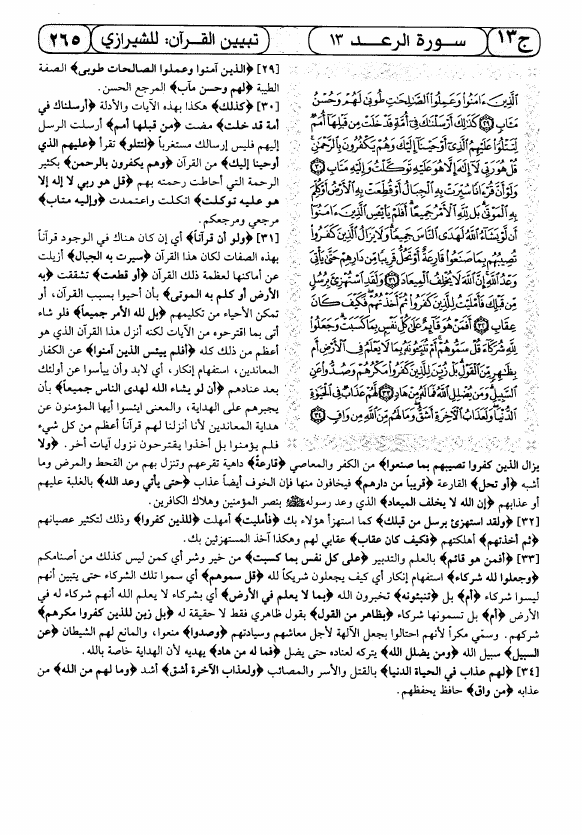 ج١٣
سورة الرعد ١٣
تبيين القرآن: للشيرازي
٢٦٥
الَّذِينَ ءَامَنُوا وَعَمِلُوا الصَّالِحَاتِ طُوبَى لَهُمْ وَحُسْنُ
مَئَابٍ ﴿٢٩﴾ كَذَلِكَ أَرْسَلْنَاكَ فِي أُمَّةٍ قَدْ خَلَتْ مِن قَبْلِهَا أُمَمٌ
لِّتَتْلُوَا عَلَيْهِمُ الَّذِي أَوْحَيْنَا إِلَيْكَ وَهُمْ يَكْفُرُونَ بِالرَّحْمَنِ
قُلْ هُوَ رَبِّي لَا إِلَهَ إِلَّا هُوَ عَلَيْهِ تَوَكَّلْتُ وَإِلَيْهِ مَتَابِ ﴿٣٠﴾
وَلَوْ أَنَّ قُرْءَانًا سُيِّرَتْ بِهِ الْجِبَالُ أَوْ قُطِّعَتْ بِهِ الْأَرْضُ أَوْ كُلِّمَ
بِهِ الْمَوْتَى بَل لِّلَّهِ الْأَمْرُ جَمِيعًا أَفَلَمْ يَايْئَسِ الَّذِينَ ءَامَنُوا
أَن لَّوْ يَشَاءُ اللَّهُ لَهَدَى النَّاسَ جَمِيعًا وَلَا يَزَالُ الَّذِينَ كَفَرُوا
تُصِيبُهُم بِمَا صَنَعُوا قَارِعَةٌ أَوْ تَحُلُّ قَرِيبًا مِّن دَارِهِمْ حَتَّى يَأْتِيَ
وَعْدُ اللَّهِ إِنَّ اللَّهَ لَا يُخْلِفُ الْمِيعَادَ ﴿٣١﴾ وَلَقَدِ اسْتُهْزِئَ بِرُسُلٍ
مِّن قَبْلِكَ فَأَمْلَيْتُ لِلَّذِينَ كَفَرُوا ثُمَّ أَخَذْتُهُمْ فَكَيْفَ كَانَ
عِقَابِ ﴿٣٢﴾ أَفَمَنْ هُوَ قَائِمٌ عَلَى كُلِّ نَفْسٍ بِمَا كَسَبَتْ وَجَعَلُوا
لِلَّهِ شُرَكَاءَ قُلْ سَمُّوهُمْ أَمْ تُنَبِّئُونَهُ بِمَا لَا يَعْلَمُ فِي الْأَرْضِ أَم
بِظَاهِرٍ مِّنَ الْقَوْلِ بَلْ زُيِّنَ لِلَّذِينَ كَفَرُوا مَكْرُهُمْ وَصُدُّوا عَنِ
السَّبِيلِ وَمَن يُضْلِلِ اللَّهُ فَمَا لَهُ مِنْ هَادٍ ﴿٣٣﴾ لَّهُمْ عَذَابٌ فِي الْحَيَاةِ
الدُّنْيَا وَلَعَذَابُ الْآخِرَةِ أَشَقُّ وَمَا لَهُم مِّنَ اللَّهِ مِن وَاقٍ ﴿٣٤﴾
[٢٩] ﴿الذين آمنوا وعملوا الصالحات طوبى﴾ الصفة
الطيبة ﴿لهم وحسن مآب﴾ المرجع الحسن.
[٣٠] ﴿كذلك﴾ هكذا بهذه الآيات والأدلة ﴿أرسلناك في
أمة قد خلت﴾ مضت ﴿من قبلها أمم﴾ أرسلت الرسل
إليهم فليس إرسالك مستغرباً ﴿لتتلو﴾ تقرأ ﴿عليهم الذي
أوحينا إليك﴾ من القرآن ﴿وهم يكفرون بالرحمن﴾ بكثير
الرحمة التي أحاطت رحمته بهم ﴿قل هو ربي لا إله إلا
هو عليه توكلت﴾ اتكلت واعتمدت ﴿وإليه متاب﴾
مرجعي ومرجعكم.
[٣١] ﴿ولو أن قرآناً﴾ أي إن كان هناك في الوجود قرآناً
بهذه الصفات لكان هذا القرآن ﴿سيرت به الجبال﴾ أزيلت
عن أماكنها لعظمة ذلك القرآن ﴿أو قطعت﴾ تشققت ﴿به
الأرض أو كلم به الموتى﴾ بأن أحيوا بسبب القرآن، أو
تمكن الأحياء من تكليمهم ﴿بل لله الأمر جميعاً﴾ فلو شاء
أتى بما اقترحوه من الآيات لكنه أنزل هذا القرآن الذي هو
أعظم من ذلك كله ﴿أفلم ييئس الذين آمنوا﴾ عن الكفار
المعاندين، استفهام إنكار، أي لابد وأن ييأسوا عن أولئك
بعد عنادهم ﴿أن لو يشاء الله لهدى الناس جميعاً﴾ بأن
يجبرهم على الهداية، والمعنى ايئسوا أيها المؤمنون عن
هداية المعاندين لأنا أنزلنا لهم قرآناً أعظم من كل شيء
فلم يؤمنوا بل أخذوا يقترحون نزول آيات أخر. ﴿ولا
يزال الذين كفروا تصيبهم بما صنعوا﴾ من الكفر والمعاصي ﴿قارعة﴾ داهية تقرعهم وتنزل بهم من القحط والمرض وما
أشبه ﴿أو تحل﴾ القارعة ﴿قريباً من دارهم﴾ فيخافون منها فإن الخوف أيضاً عذاب ﴿حتى يأتي وعد الله﴾ بالغلبة عليهم
أو عذابهم ﴿إن الله لا يخلف الميعاد﴾ الذي وعد رسوله ﷺ بنصر المؤمنين وهلاك الكافرين.
[٣٢] ﴿ولقد استهزئ برسل من قبلك﴾ كما استهزأ هؤلاء بك ﴿فأمليت﴾ أمهلت ﴿للذين كفروا﴾ وذلك لتكثير عصيانهم
﴿ثم أخذتهم﴾ أهلكتهم ﴿فكيف كان عقاب﴾ عقابي لهم وهكذا آخذ المستهزئين بك.
[٣٣] ﴿أفمن هو قائم﴾ بالعلم والتدبير ﴿على كل نفس بما كسبت﴾ من خير وشر أي كمن ليس كذلك من أصنامكم
﴿وجعلوا لله شركاء﴾ استفهام إنكار أي كيف يجعلون شريكاً لله ﴿قل سموهم﴾ أي سموا تلك الشركاء حتى يتبين أنهم
ليسوا شركاء ﴿أم﴾ بل ﴿تنبئونه﴾ تخبرون الله ﴿بما لا يعلم في الأرض﴾ أي بشركاء لا يعلم الله أنهم شركاء له في
الأرض ﴿أم﴾ بل تسمونها شركاء ﴿بظاهر من القول﴾ بقول ظاهري فقط لا حقيقة له ﴿بل زين للذين كفروا مكرهم﴾
شركهم. وسمّي مكراً لأنهم احتالوا بجعل الآلهة لأجل معاشهم وسيادتهم ﴿وصدوا﴾ منعوا، والمانع لهم الشيطان ﴿عن
السبيل﴾ سبيل الله ﴿ومن يضلل الله﴾ يتركه لعناده حتى يضل ﴿فما له من هاد﴾ يهديه لأن الهداية خاصة بالله.
[٣٤] ﴿لهم عذاب في الحياة الدنيا﴾ بالقتل والأسر والمصائب ﴿ولعذاب الآخرة أشق﴾ أشد ﴿وما لهم من الله﴾ من
عذابه ﴿من واق﴾ حافظ يحفظهم.